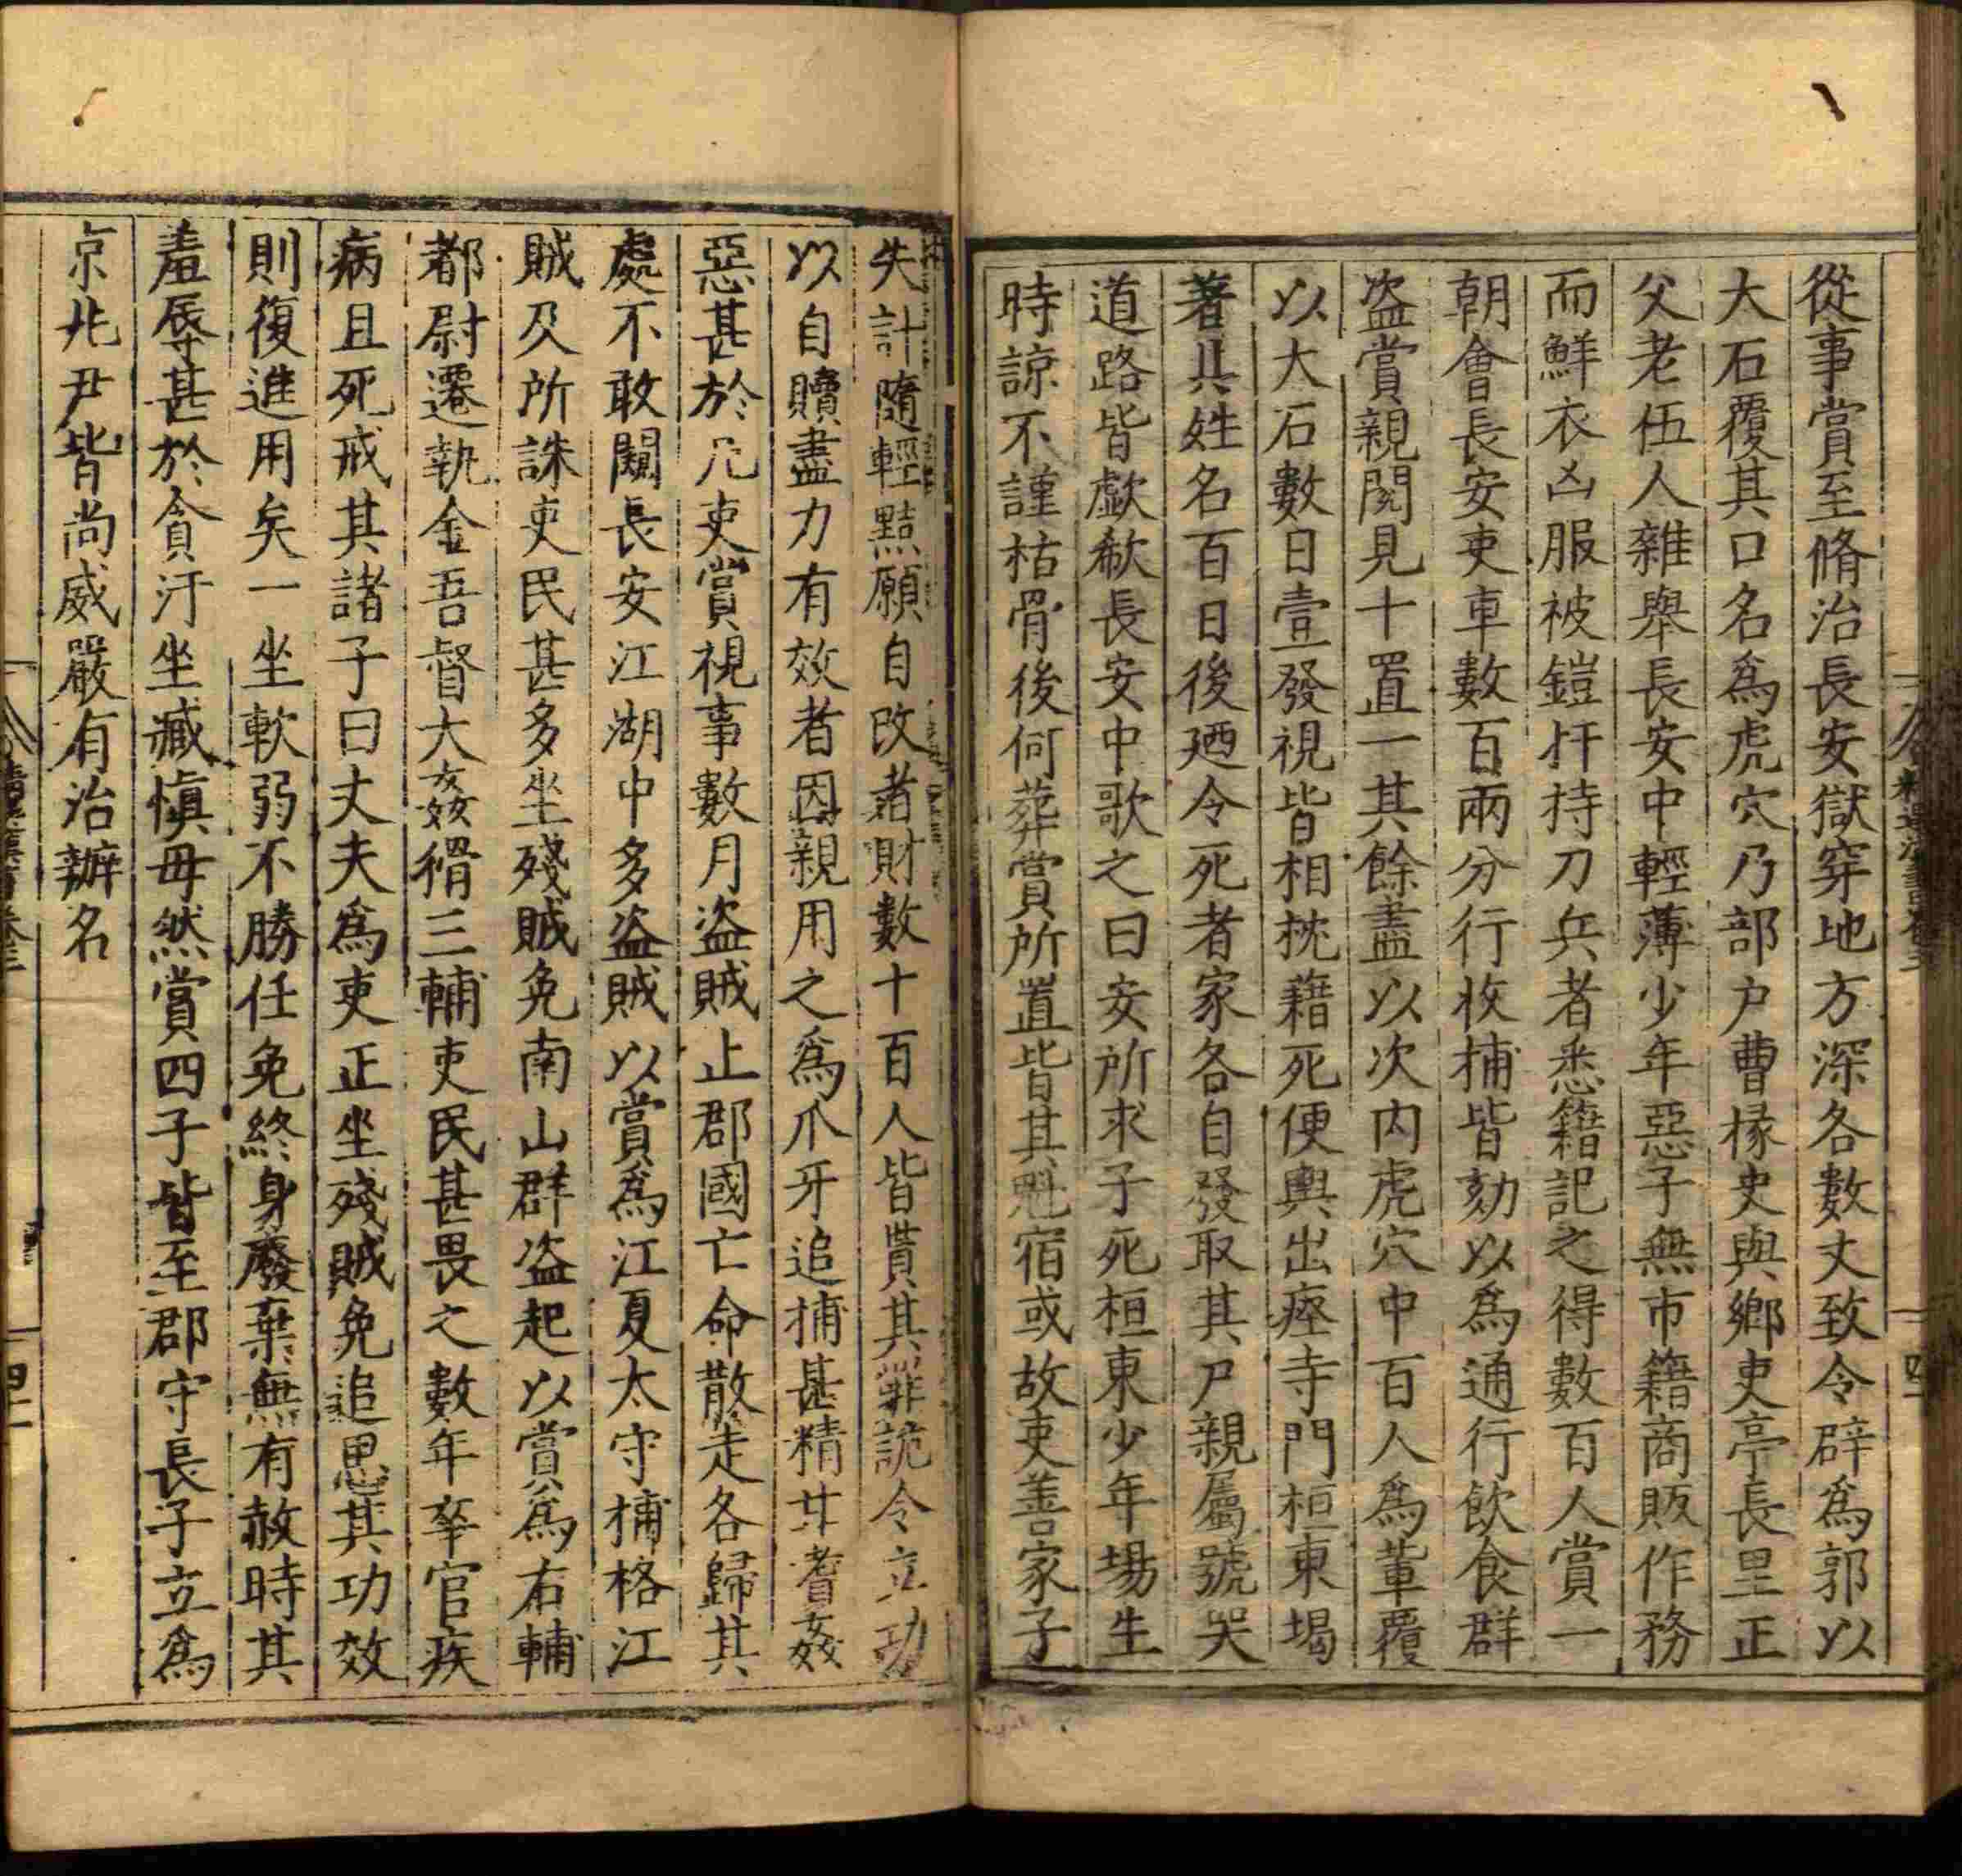 從事賞至脩治長安獄穿地方深各數丈致令辟爲郭以
大石覆其口名爲虎穴乃部户曹掾史與鄉吏亭長里正
父老伍人雜舉長安中輕薄少年惡子無市籍商販作務
而鮮衣凶服被鎧扞持刀兵者悉籍記之得數百人賞一
朝會長安吏車數百兩分行收捕皆劾以爲通行飲食群
盗賞親閱見十置一其餘盡以次内虎穴中百人爲輩覆
以大石數日壹發視皆相枕藉死便輿出瘞寺門桓東揭
著其姓名百日後廼令死者家各自發取其尸親屬號哭
道路皆歔欷長安中歌之曰安所求子死桓東少年場生
時諒不謹枯骨後何葬賞所置皆其魁宿或故吏善家子
失計隨輕黠願自改者財數十百人皆貰其罪詭令立功
以自贖盡力有效者因親用之爲爪牙追捕甚精甘耆姦
惡甚於凡吏賞視事數月盗賊止郡國亡命散走各歸其
處不敢闚長安江湖中多盗賊以賞爲江夏太守捕格江
賊及所誅吏民甚多坐殘賊免南山群盗起以賞爲右輔
都尉遷執金吾督大姦猾三輔吏民甚畏之數年卒官疾
病且死戒其諸子曰丈夫爲吏正坐殘賊免追思其功效
則復進用矣一坐軟弱不勝任免終身廢棄無有赦時其
羞辱甚於貪汙坐臧愼毋然賞四子皆至郡守長子立爲
京兆尹皆尚威嚴有治辦名